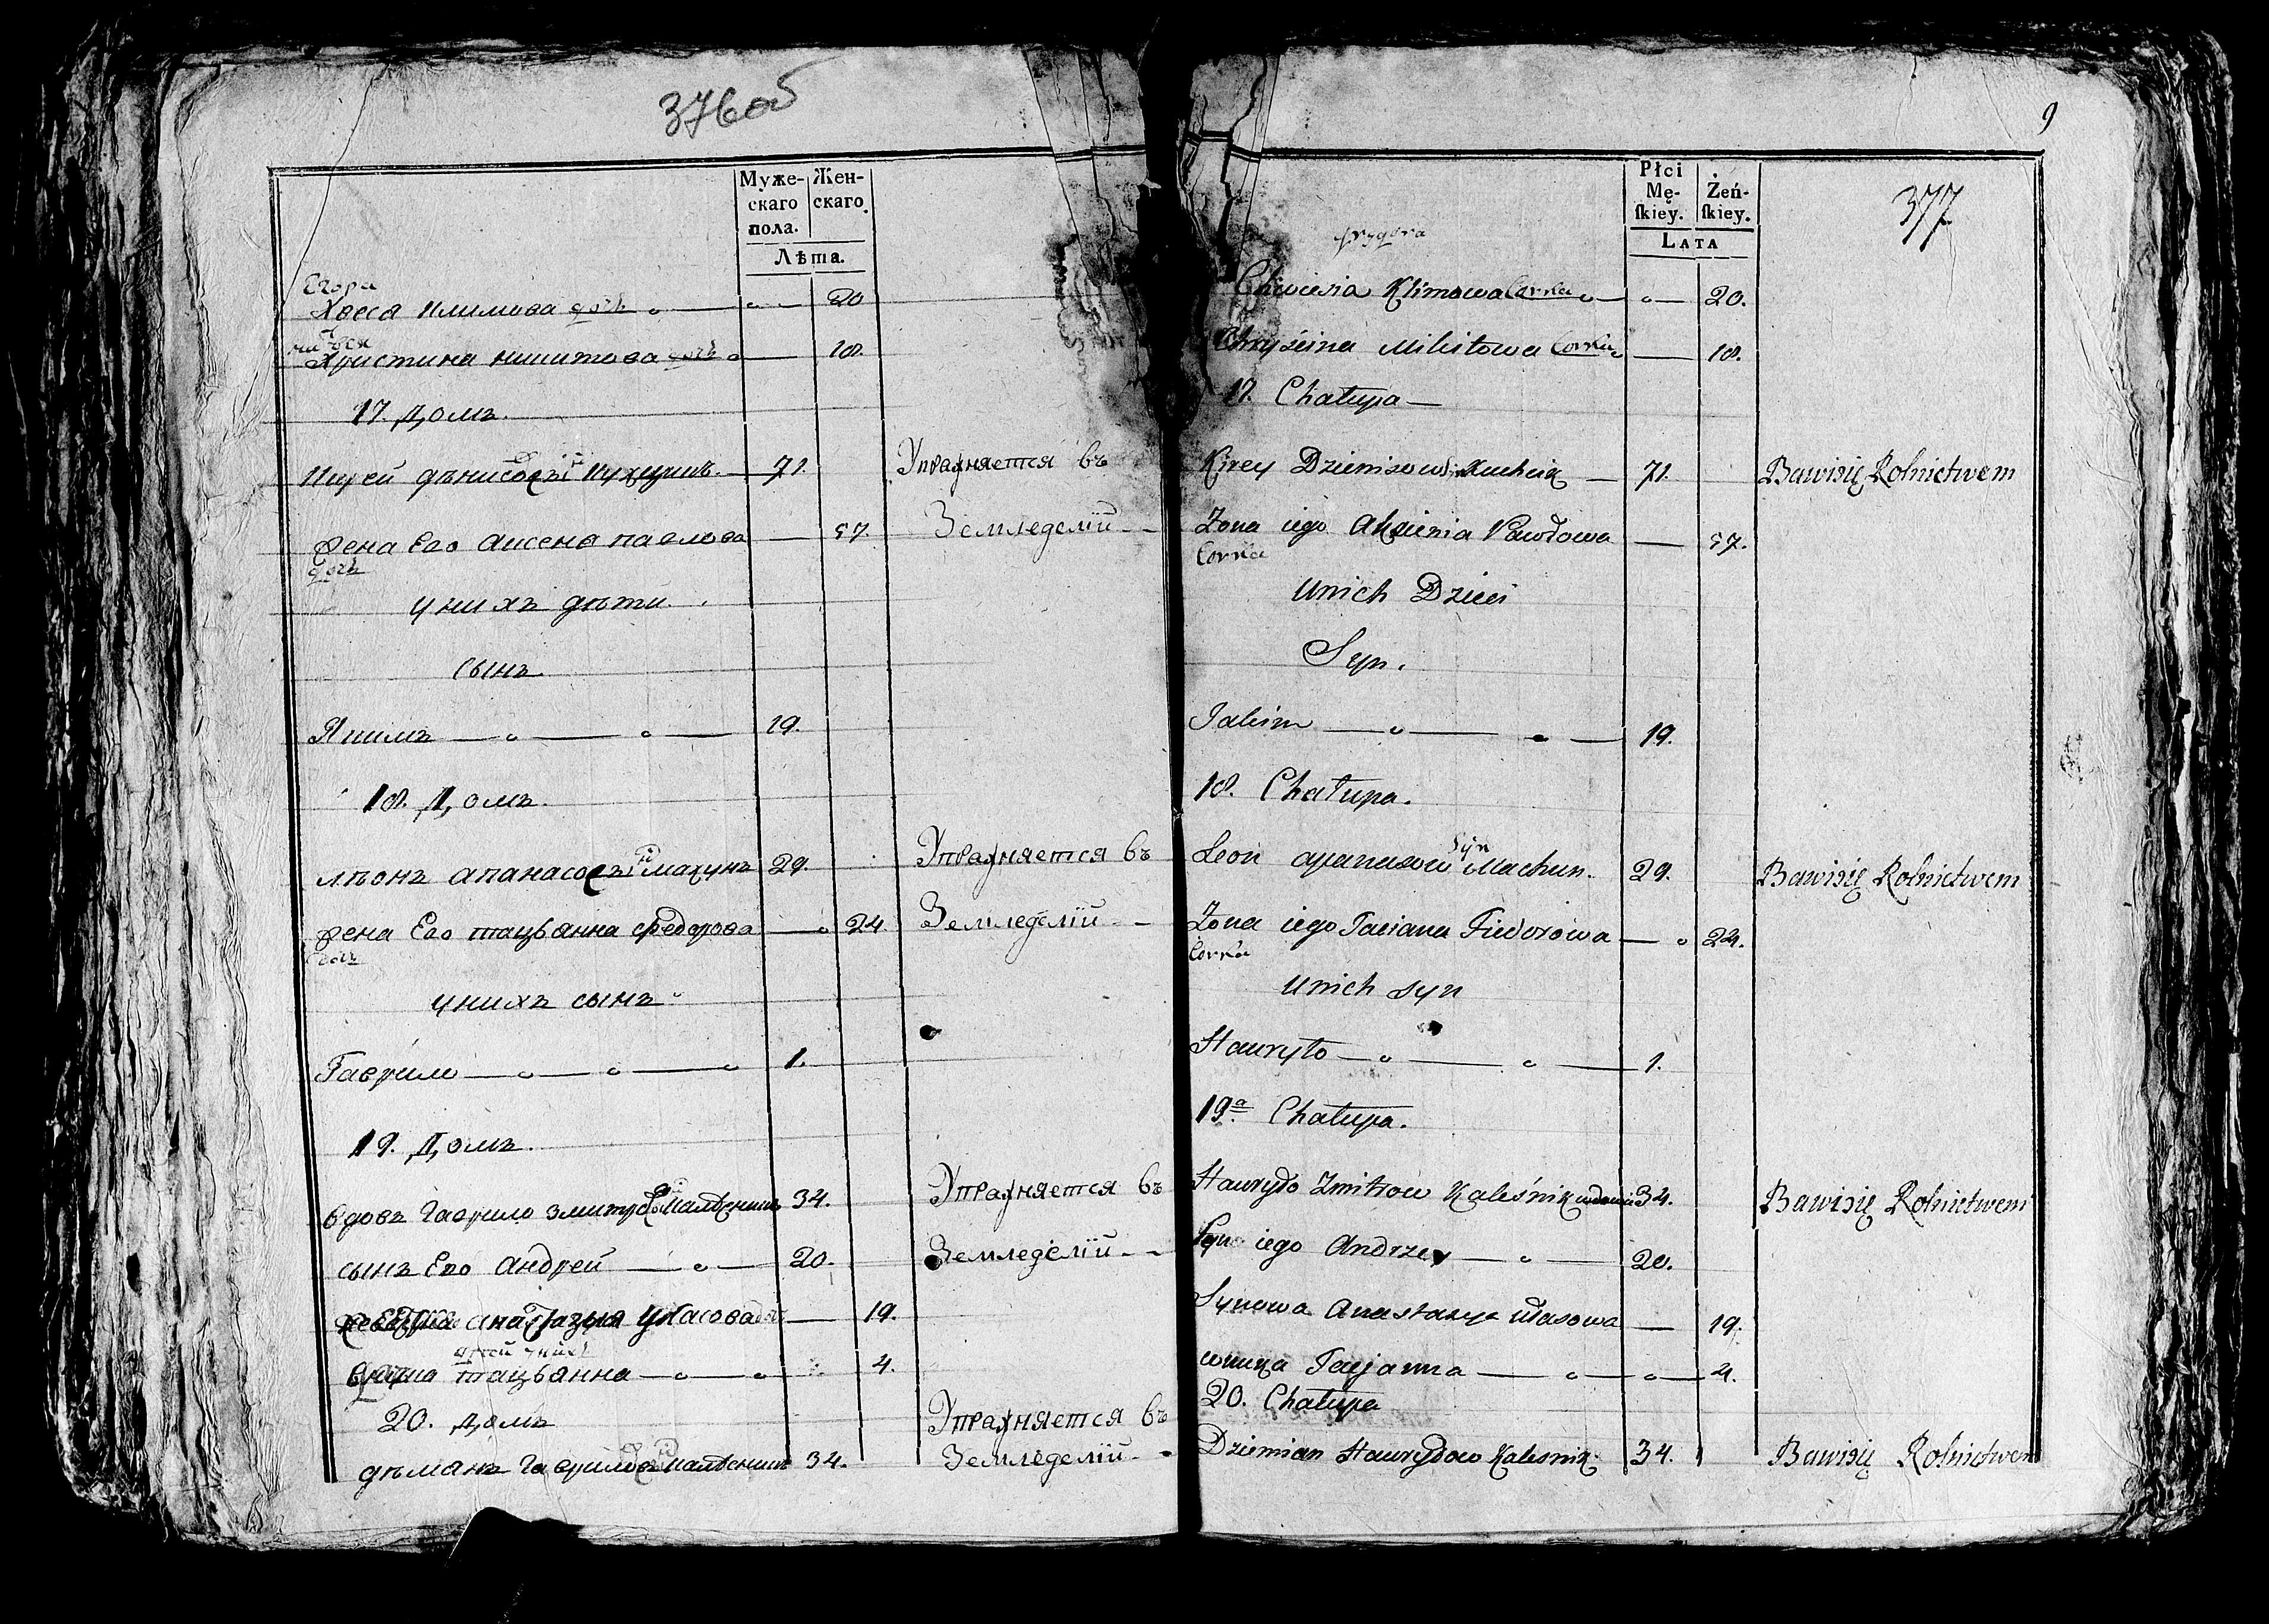 376 об
Муже-скаго пола. Жен-скаго
Лѣта.
Егора
Хвеся Климова дочь 20
Христина Никитова дочь 18.
17. Домъ.
Кирей Дѣнисовъ 71. Упражняется въ
Жена Его Аксеня Павлова 57. Земледеліи
дочь
У нихъ дѣти.
Сынъ.
Якимъ 19.
18. Домъ.
Лѣонъ Апанасовъ Махунъ 29. Упражняется въ
Жена Его Тацьянна Федорова 24. Земледеліи
дочь
У нихъ сынъ
Гаврило 1.
19. Домъ.
Вдовъ Гаврило Змитровъ Калѣсникъ 34. Упражняется въ
Сынъ Его Андрей 20. Земледеліи
Анастазыя Уласова 19.
Тацьянна 4.
20. Домъ Упражняется въ
Дѣманъ Гавриловъ Калѣсникъ 34. Земледеліи
9
377
Płci Mę-ſkiey. Żeń-ſkiey.
LATA
Chwiesia Klimowa Corka 20.
Chryścina Mikitowa Corka 18.
17. Chałupa
Kirey Dzienisow 71. Bawi się Rolnictwem
Zona iego Aksienia Pawłowa 57.
Corka
U nich Dzieci
Syn.
Jakim 19.
18. Chałupa.
Syn
Leon Apanasow Machun. 29. Bawi się Rolnictwem
Zona iego Taciana Fiedorowa 24.
Corka
U nich syn
Hauryło 1.
19a Chałupa.
Hauryło Zmitrow Kaleśnik wdowiec 34. Bawi się Rolnictwem
Syn iego Andrzey 20.
Synowa Anastazya Ułasowa 19.
wnuczka Tacjanna 4.
20. Chałupa
Dziemian Hauryłow Kalesnik 34. Bawi się Rolnictwem